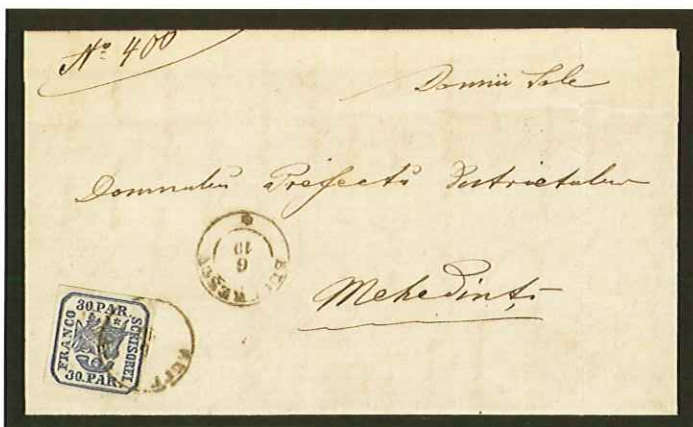 No 400
Domnii Sale
Domnului Prefectu Districtului
Mehedinți
BUCURESCI
6
10
30.PAR.
FRANCO
SCRISOREI
30.PAR.
BUCU